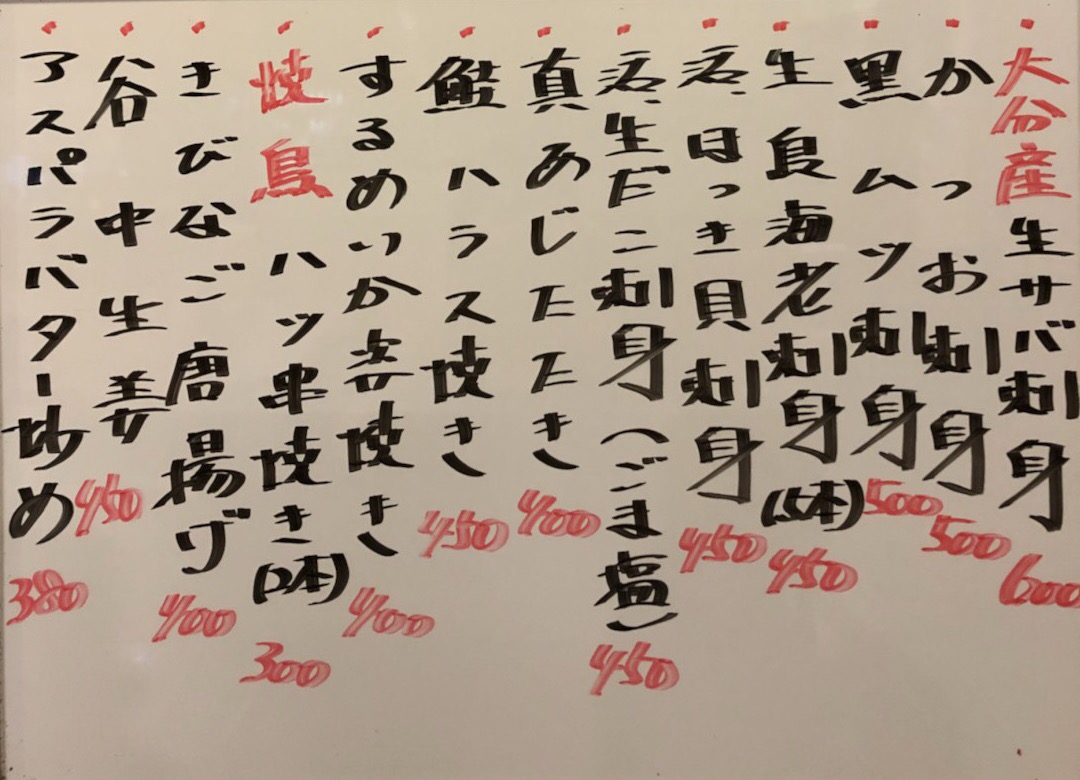 大分産生サバ刺身 600
かつお刺身 500
黒ムツ刺身 500
生 良海老刺身(5本) 450
活、ほっき貝刺身 450
活、生だこ刺身(ごま塩) 450
真あじたたき 400
鮭ハラス焼き 450
するめいか姿焼き 400
焼鳥 ハツ串焼き(2本) 300
きびなご唐揚げ 400
谷中生姜 450
アスパラバター炒め 380